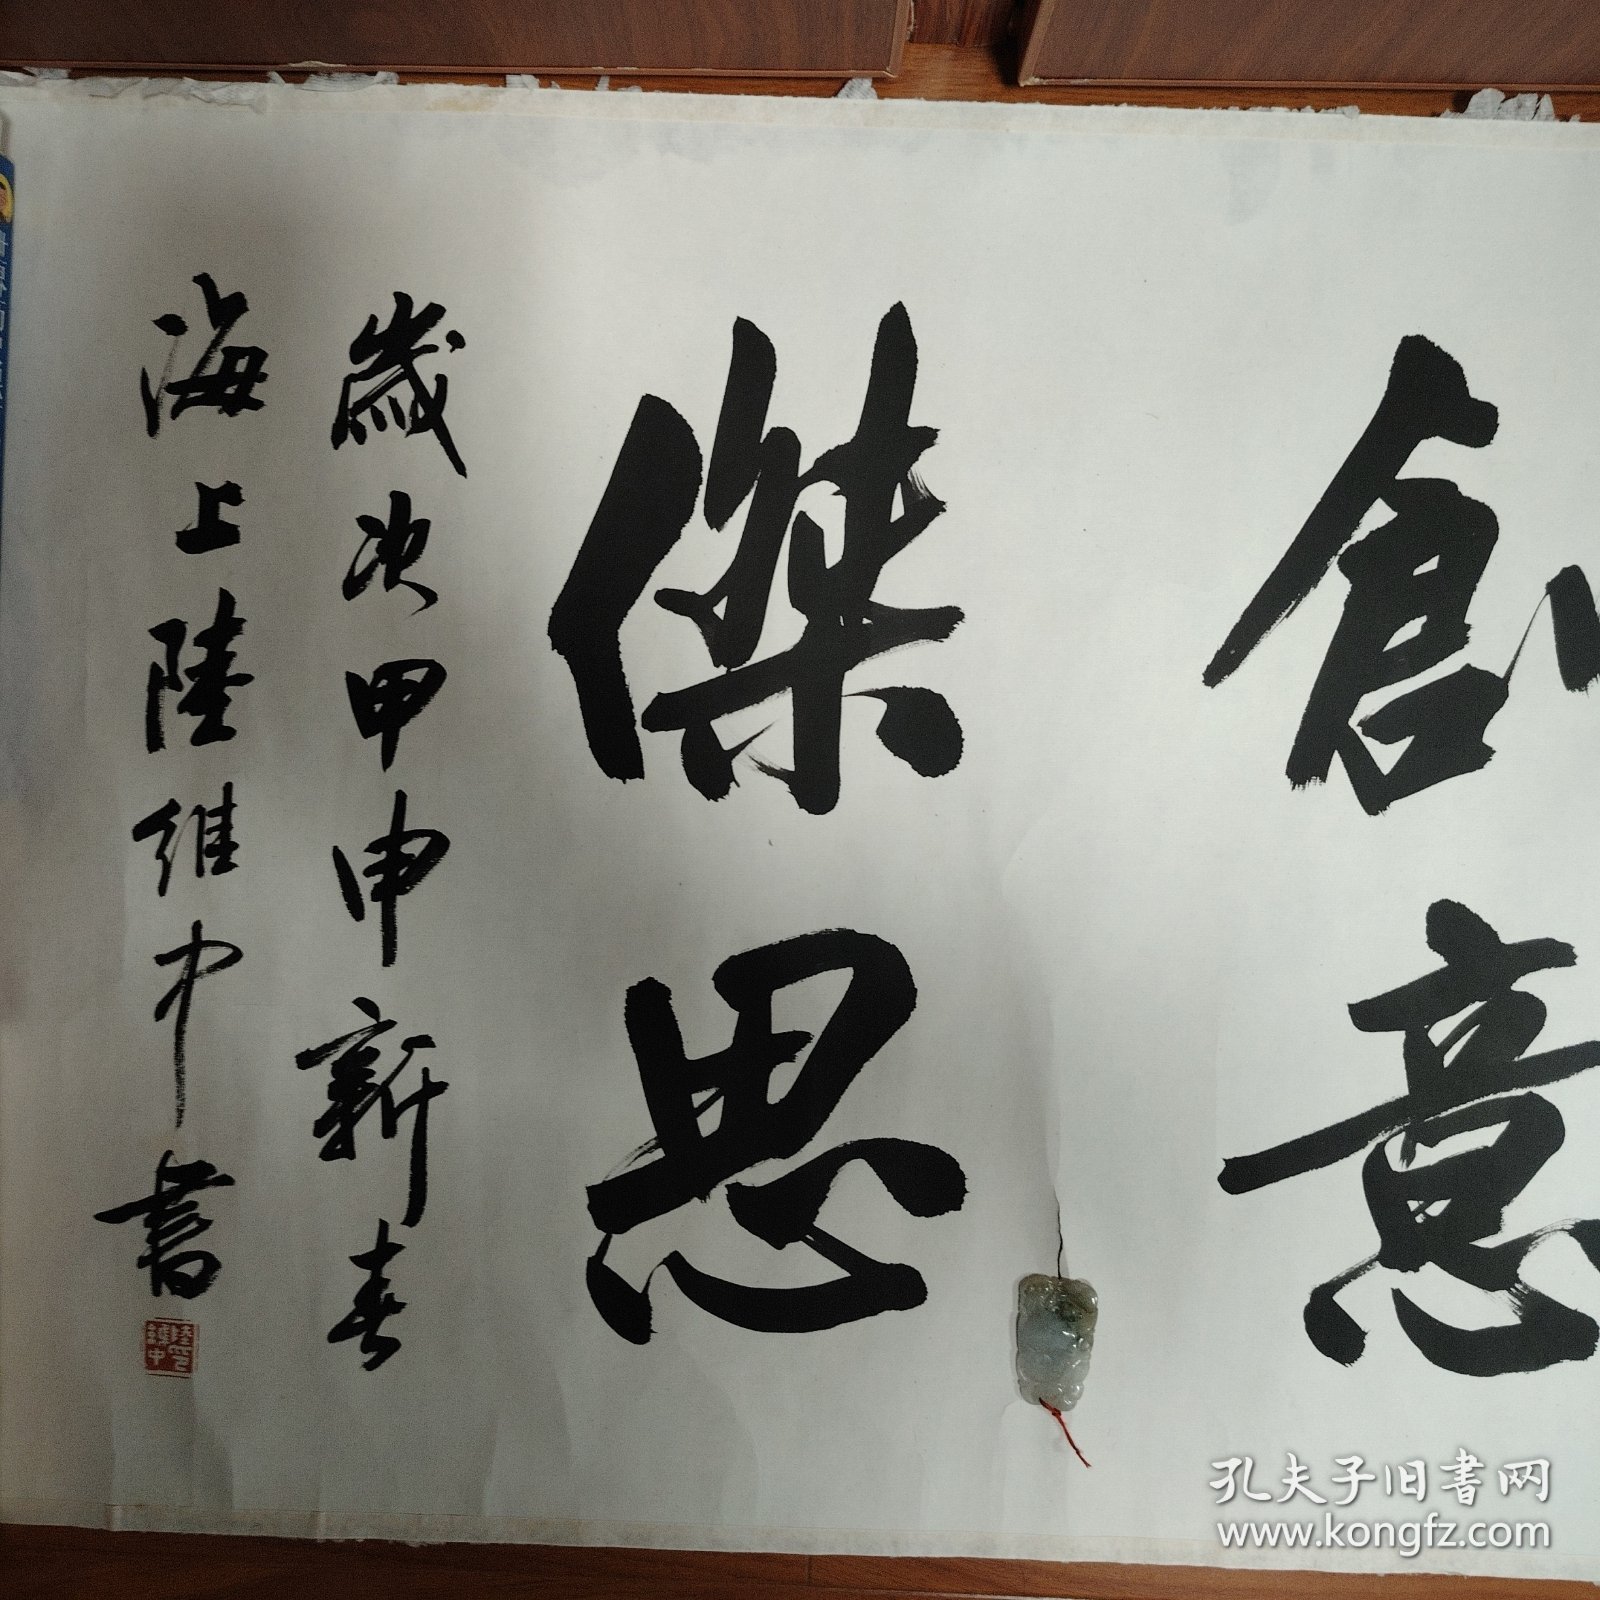 創意
傑思
歲次甲申新春
海上陸維中書
孔夫子旧书网
www.kongfz.com